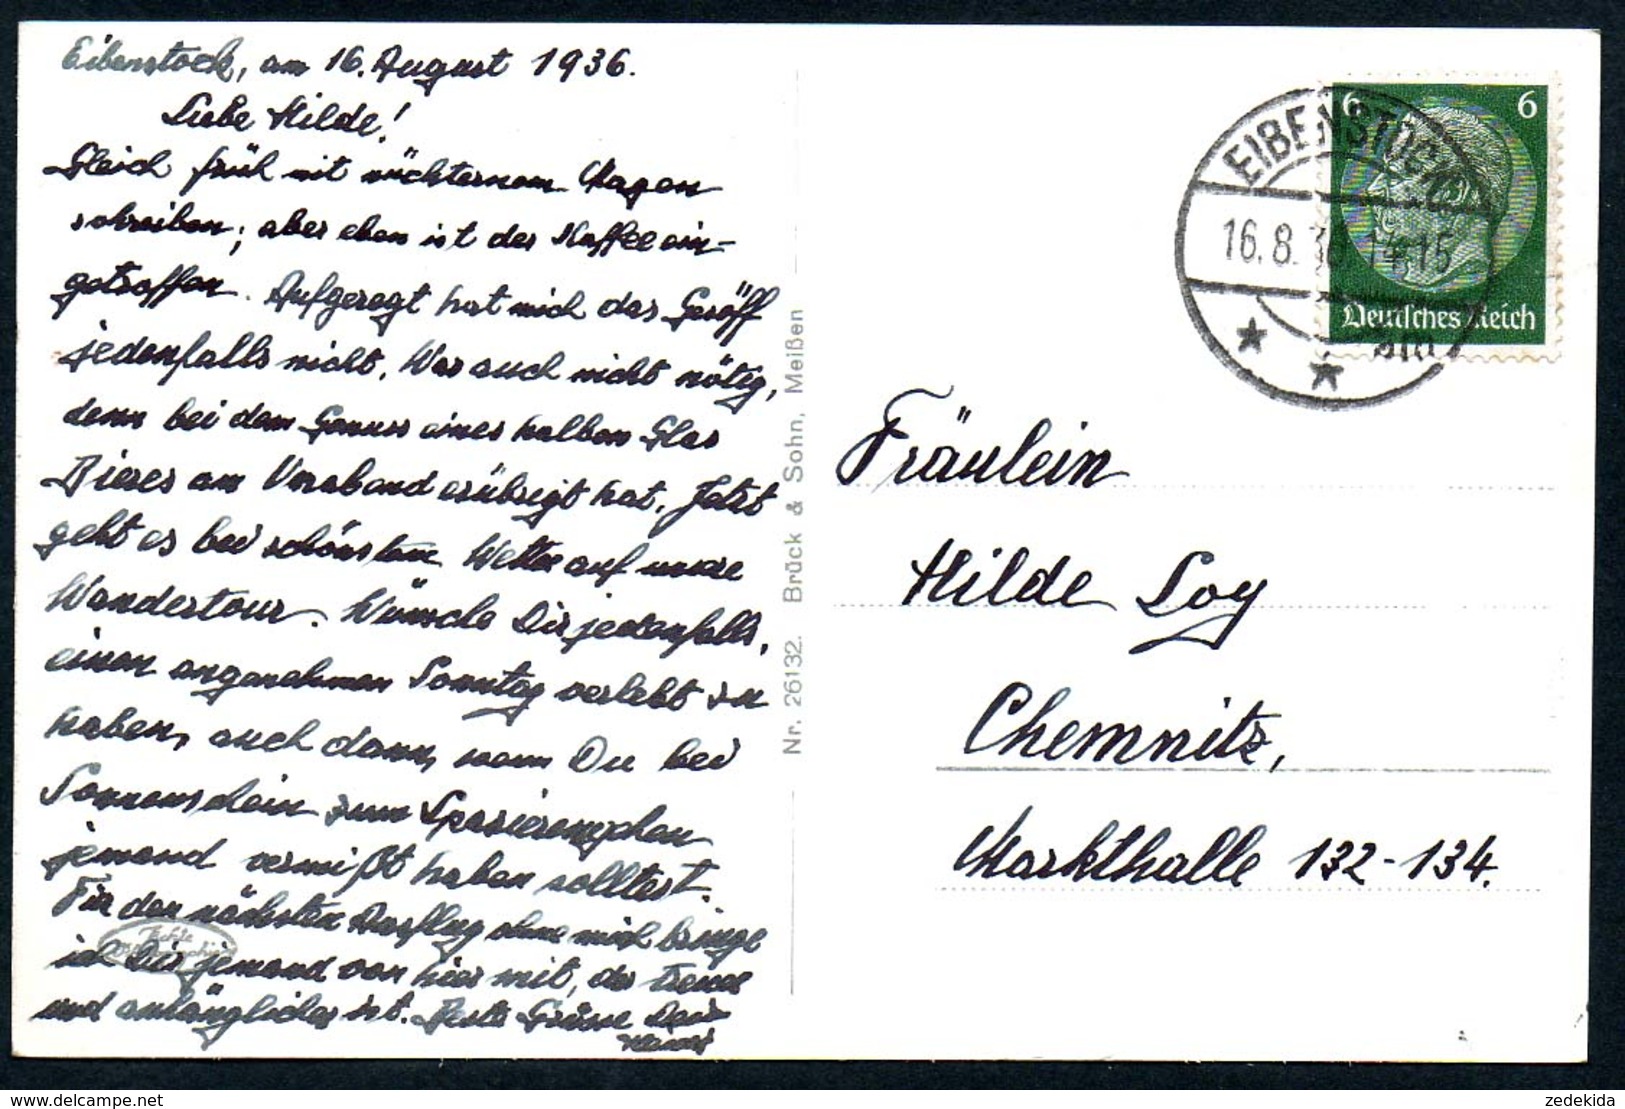 Eibenstock, am 16. August 1936.
Liebe Hilde!
Gleich früh mit nüchternem Magen
schreiben; aber eben ist der Kaffee ein-
getroffen. Aufgeregt hat mich das Gesöff
jedenfalls nicht. War auch nicht nötig,
denn bei dem Genuss eines halben Glas
Bieres am Vorabend erübrigt hat. Jetzt
geht es bei schönstem Wetter auf unsere
Wandertour. Wünsche Dir jedenfalls,
einen angenehmen Sonntag verlebt zu
haben, auch dann, wenn Du bei
Sonnenschein zum Spazierengehen
jemand vermißt haben solltest.
Für den nächsten Ausflug ohne mich bringe
ich Dir jemand von hier mit, der treue
und anhänglicher ist. Beste Grüsse Dein
Echte
Nr. 26132. Brück & Sohn, Meißen
EIBENSTOCK
16.8.36 14-15
6 6
Deutsches Reich
Fräulein
Hilde Loy
Chemnitz,
Markthalle 132-134.
zedekida